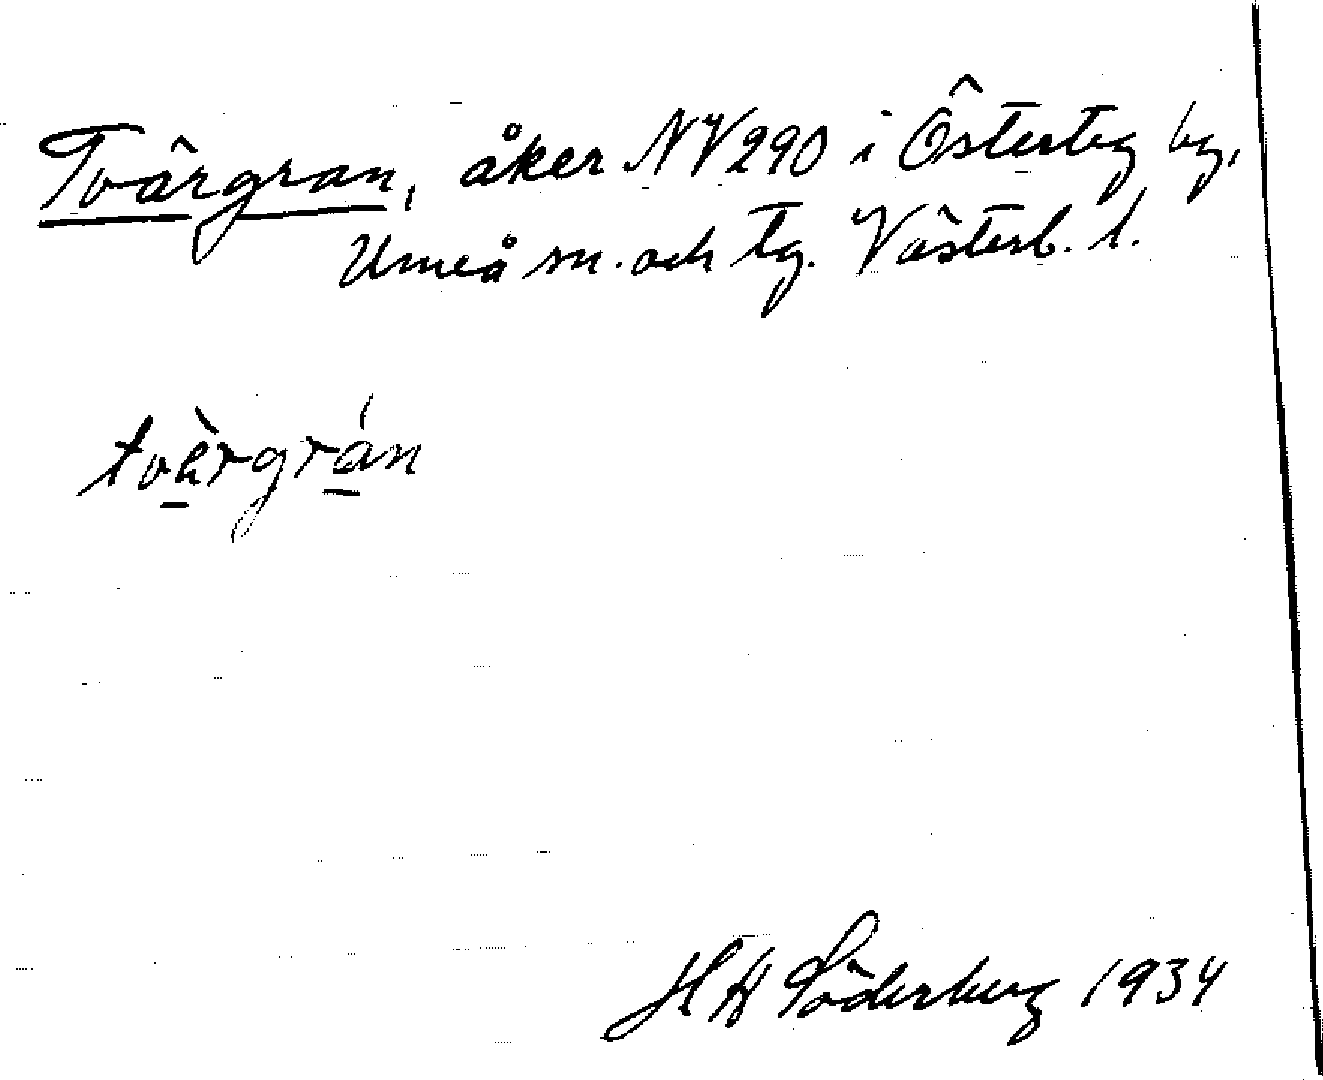 Tvärgran, åker NV 290 i Österteg by,
Umeå sn. och tg. Västerb. l.
tvärgrán
H H Söderberg 1934